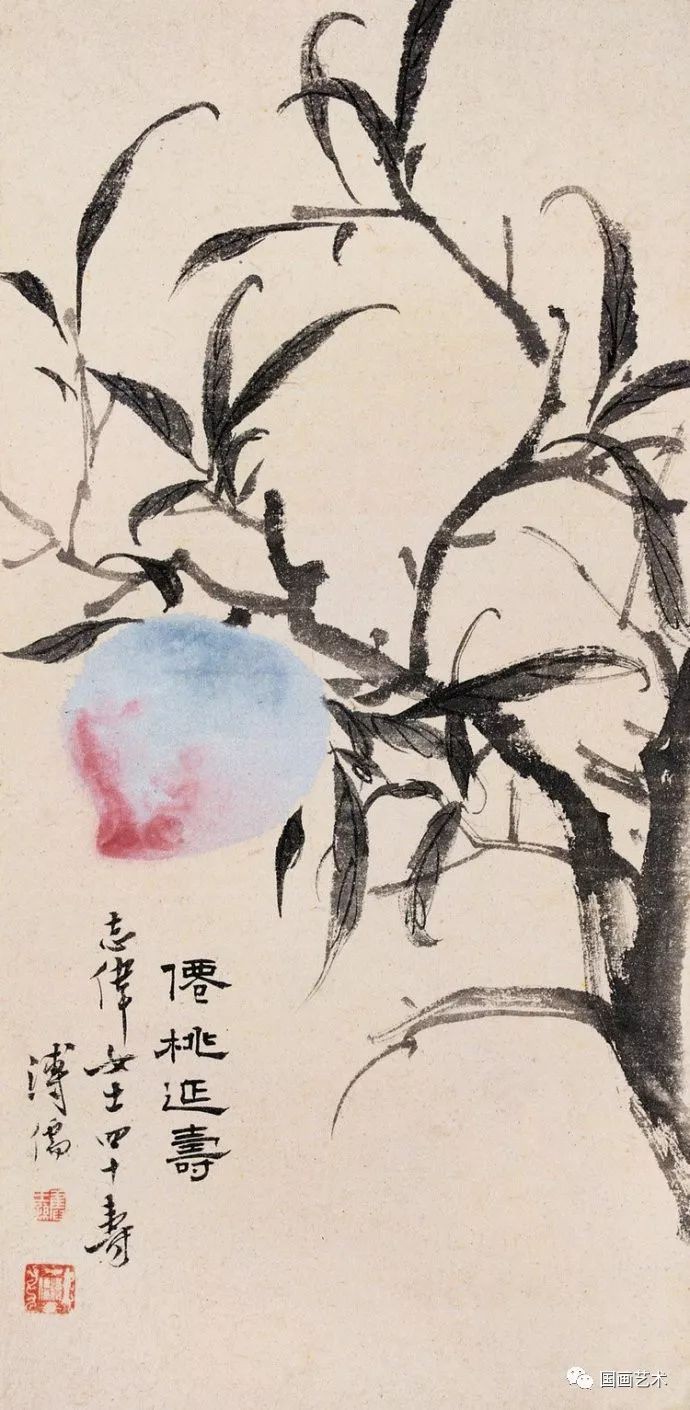 僊桃延壽
志偉女士四十壽
溥儒
国画艺术